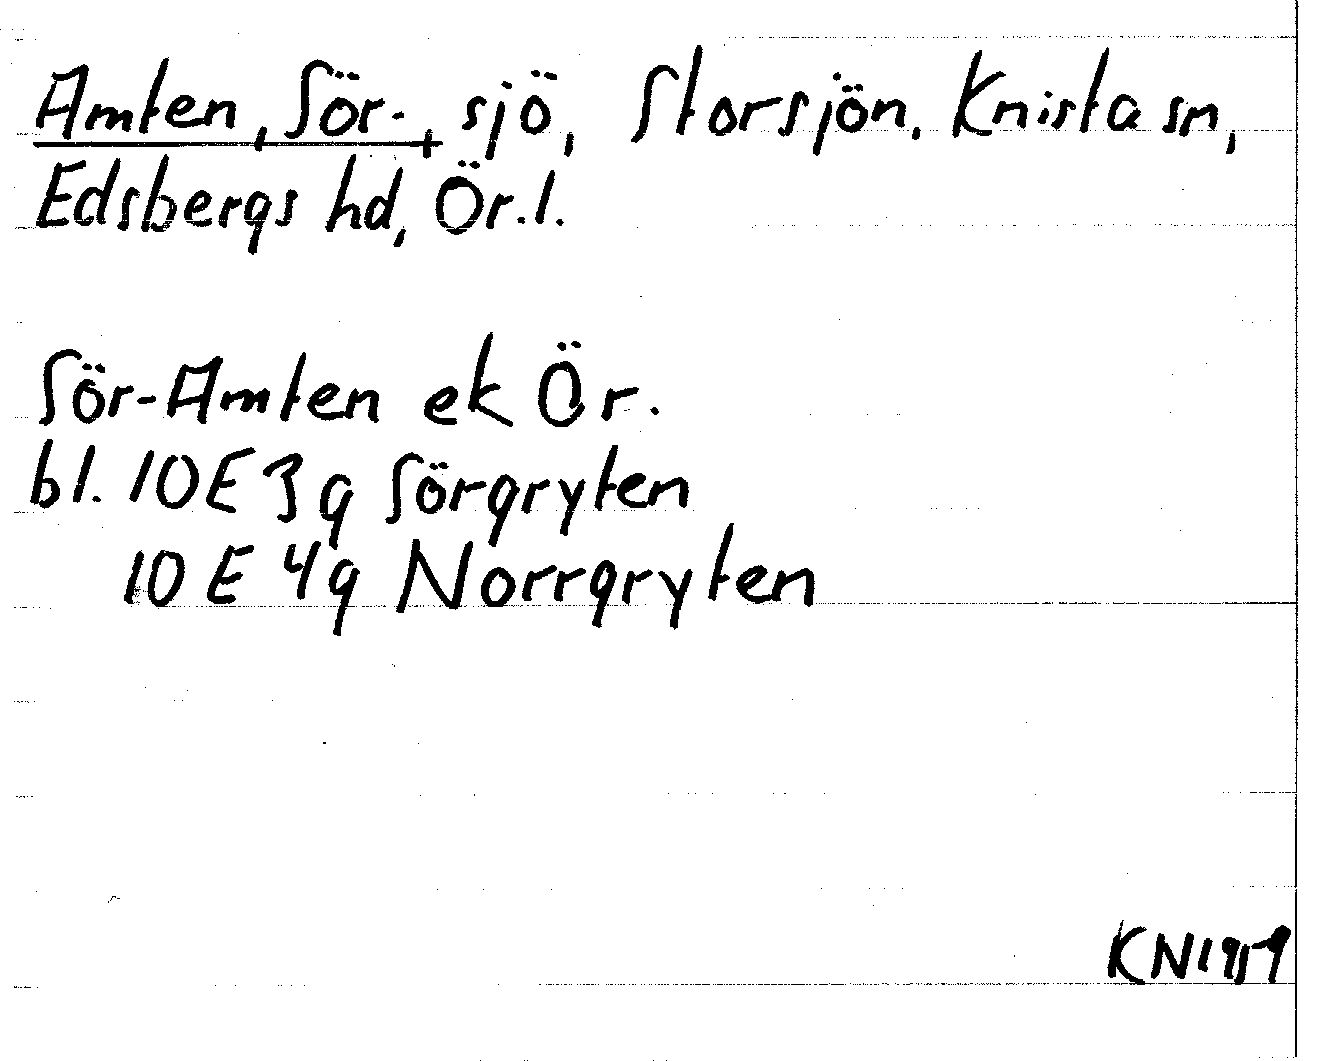 Amten, Sör-, sjö, Storsjön, Knista sn,
Edsbergs hd, Ör. l.
Sör-Amten ek Ör.
bl. 10E 3g Sörgryten
10 E 4g Norrgryten